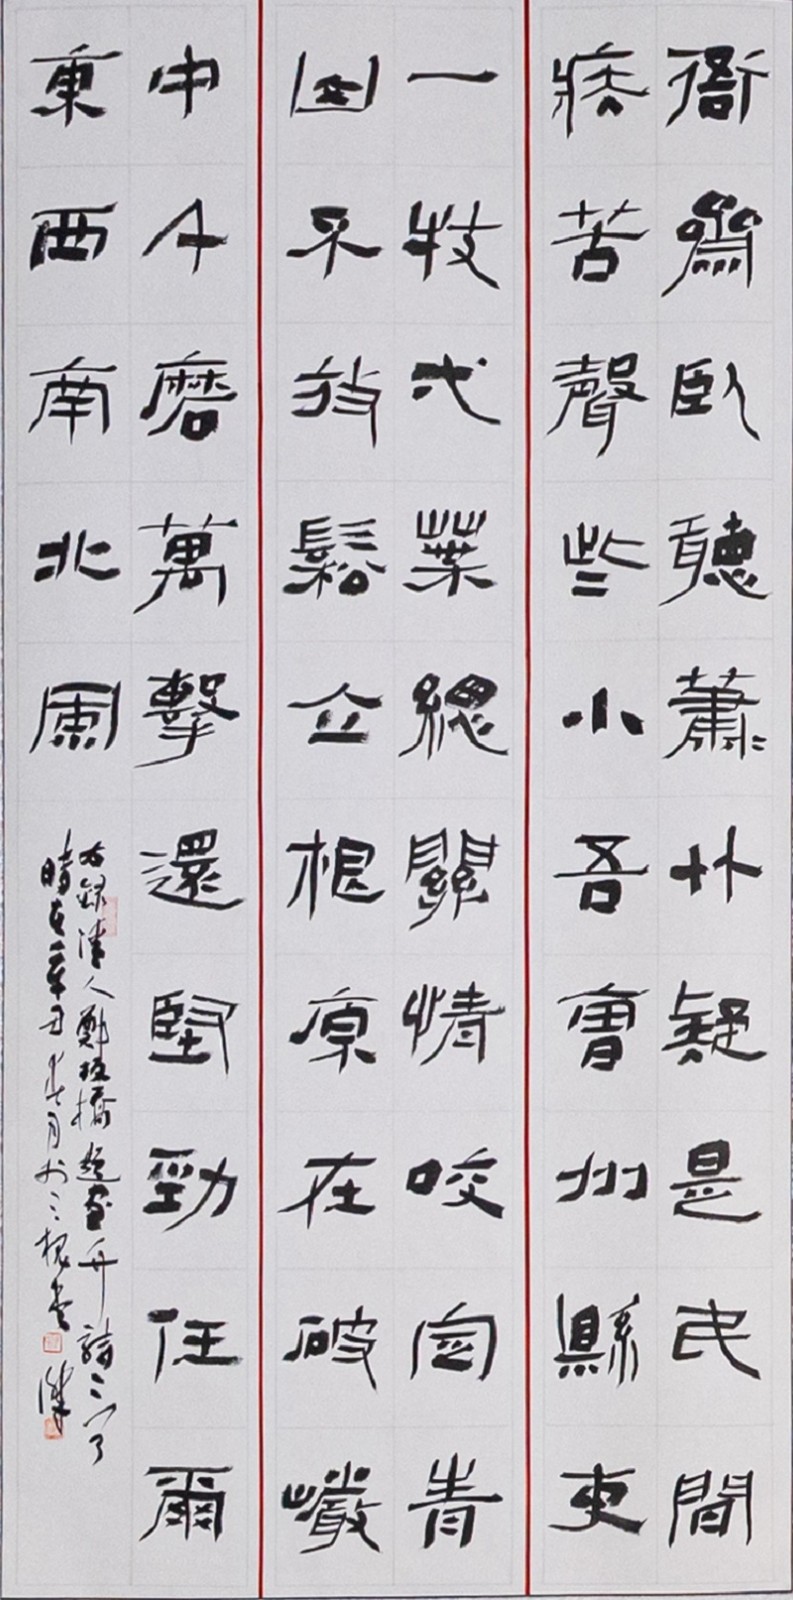 衙齋臥聽蕭〻竹疑是民間
疾苦聲些小吾曹州縣吏
一枝弌葉總關情咬定青
山不放鬆立根原在破巖
中千磨萬擊還堅勁任爾
東西南北風
右錄清人鄭板橋題畫竹詩二首
時在辛丑春月於三槐堂